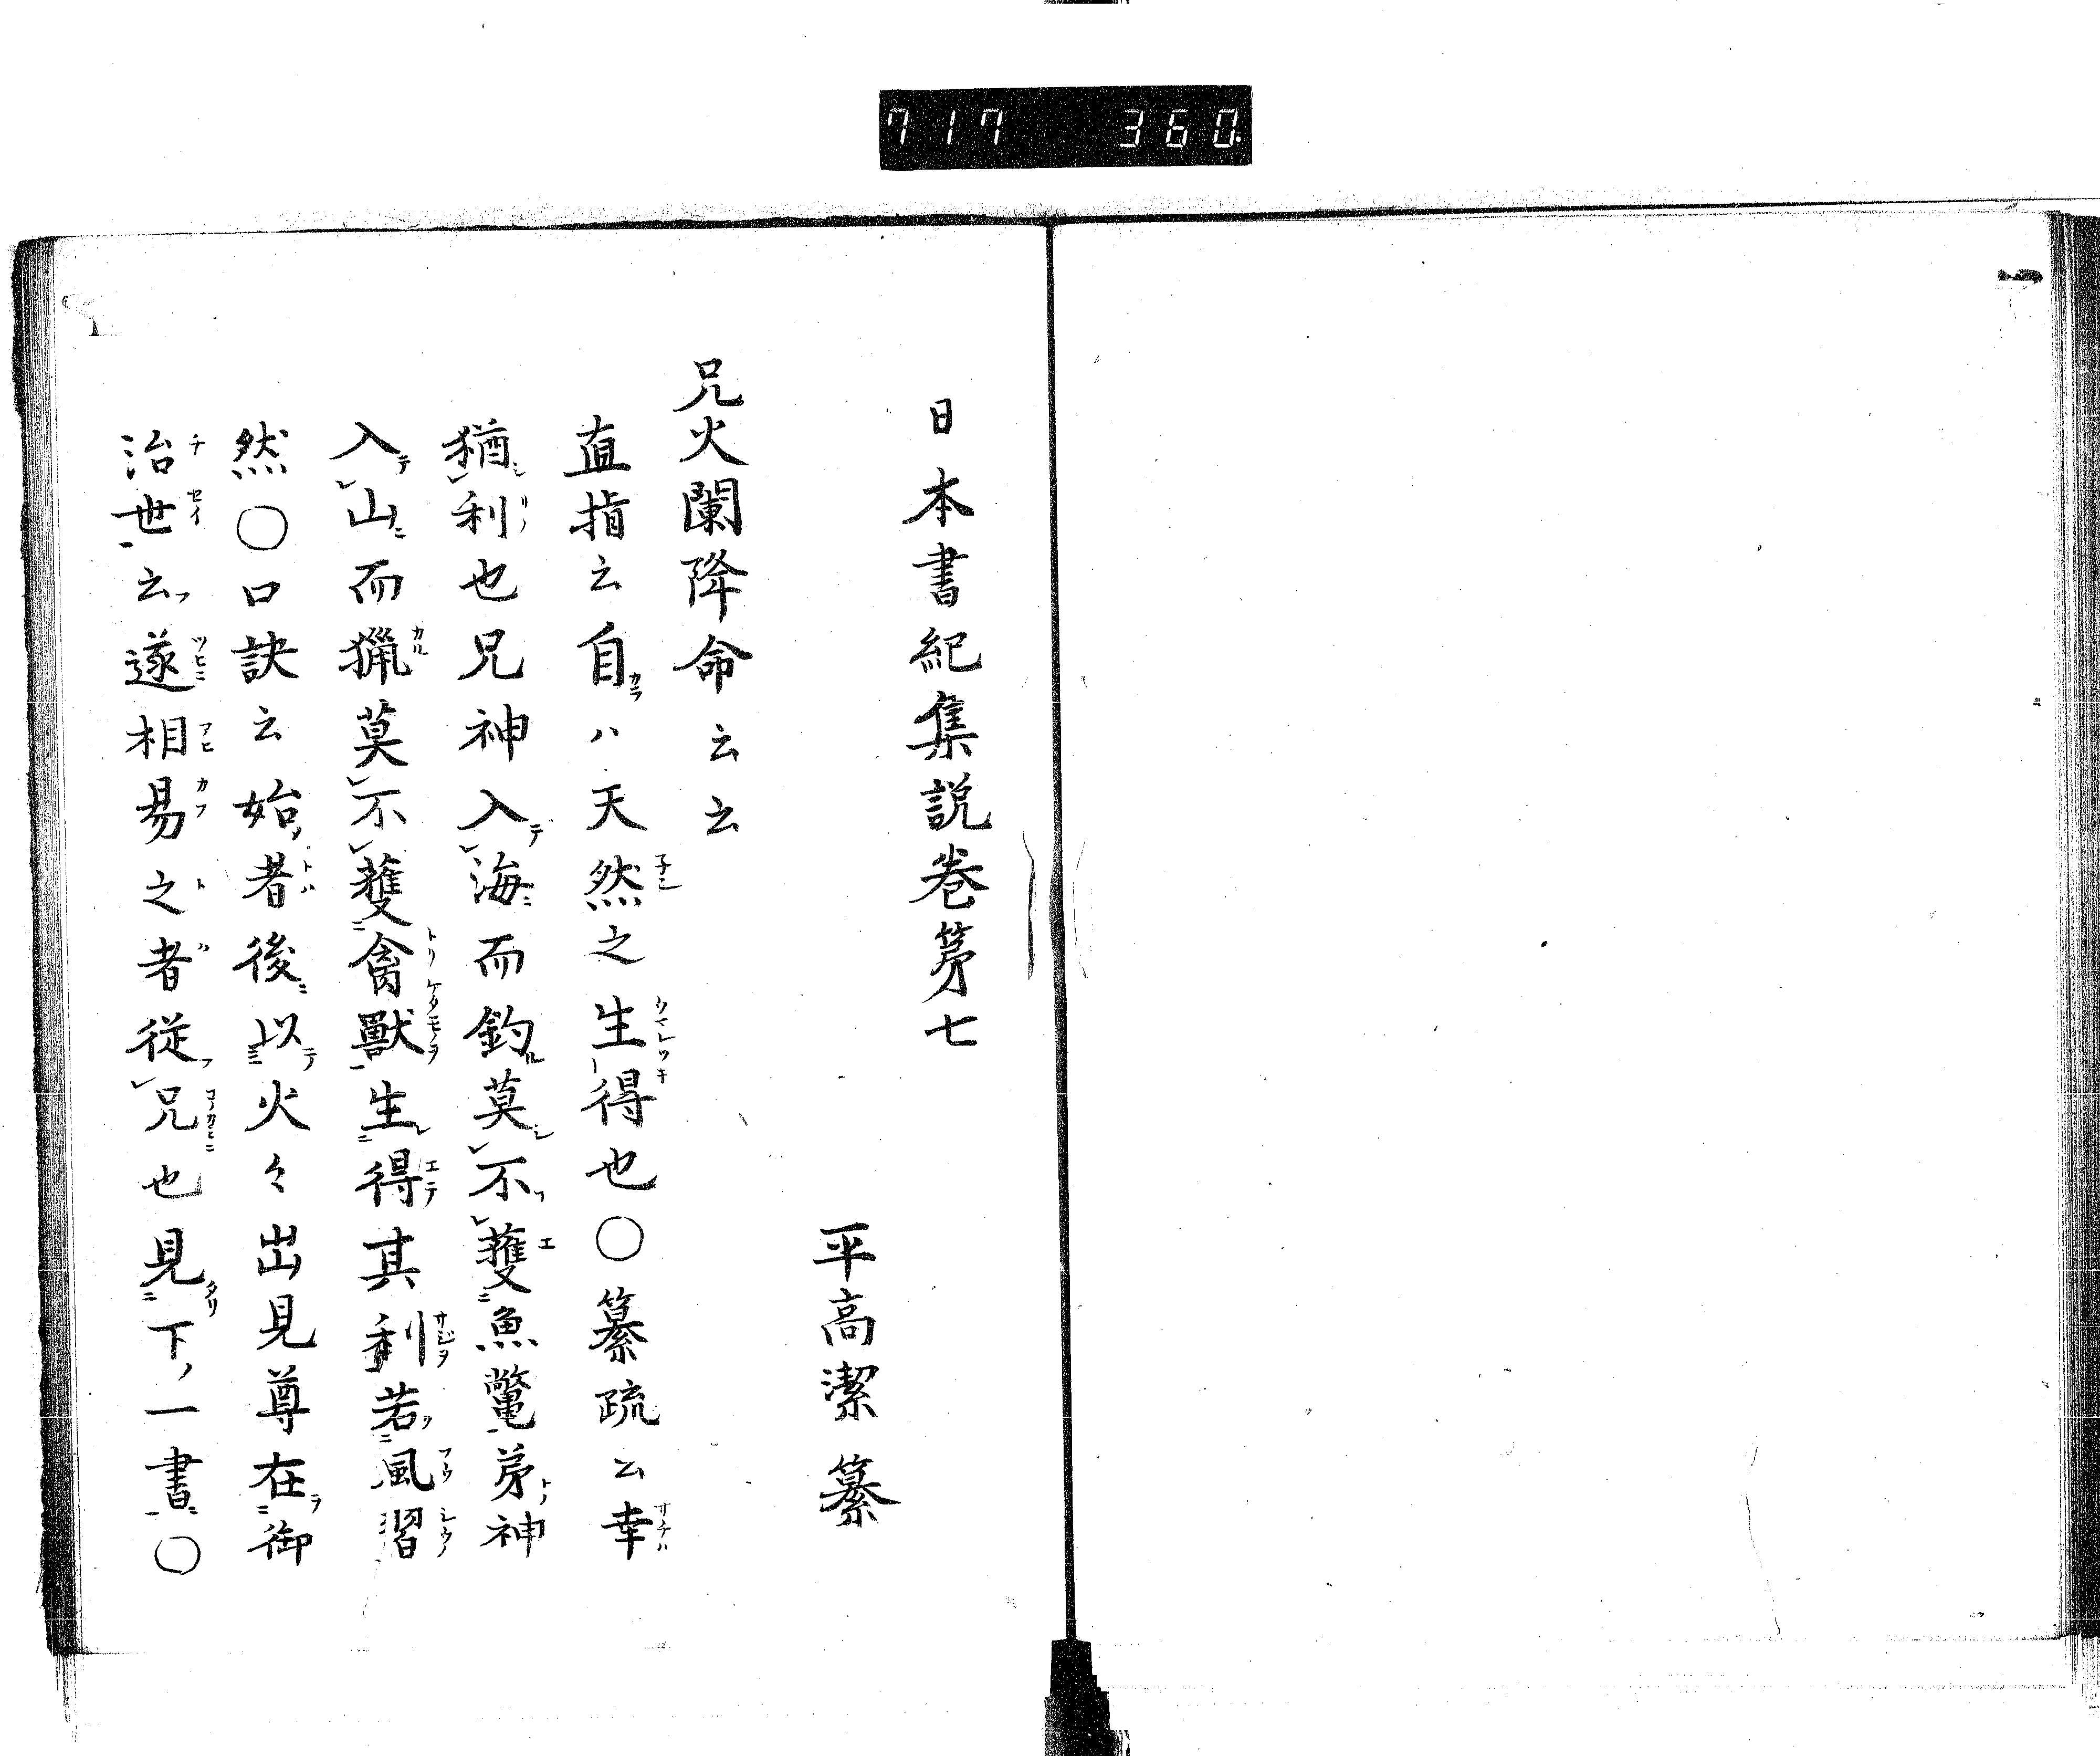 717 360.
日本書紀集説巻第七
平高潔纂
兄火闌降命云云
直指云自ハ天然之生得也〇纂疏云幸
猶利也兄神入海而釣莫不獲魚鼈弟神
入山而猟莫不獲禽獣生得其利若風習
然〇口訣云始者後以火々出見尊在御
治世云遂相易之者従兄也見下ノ一書〇